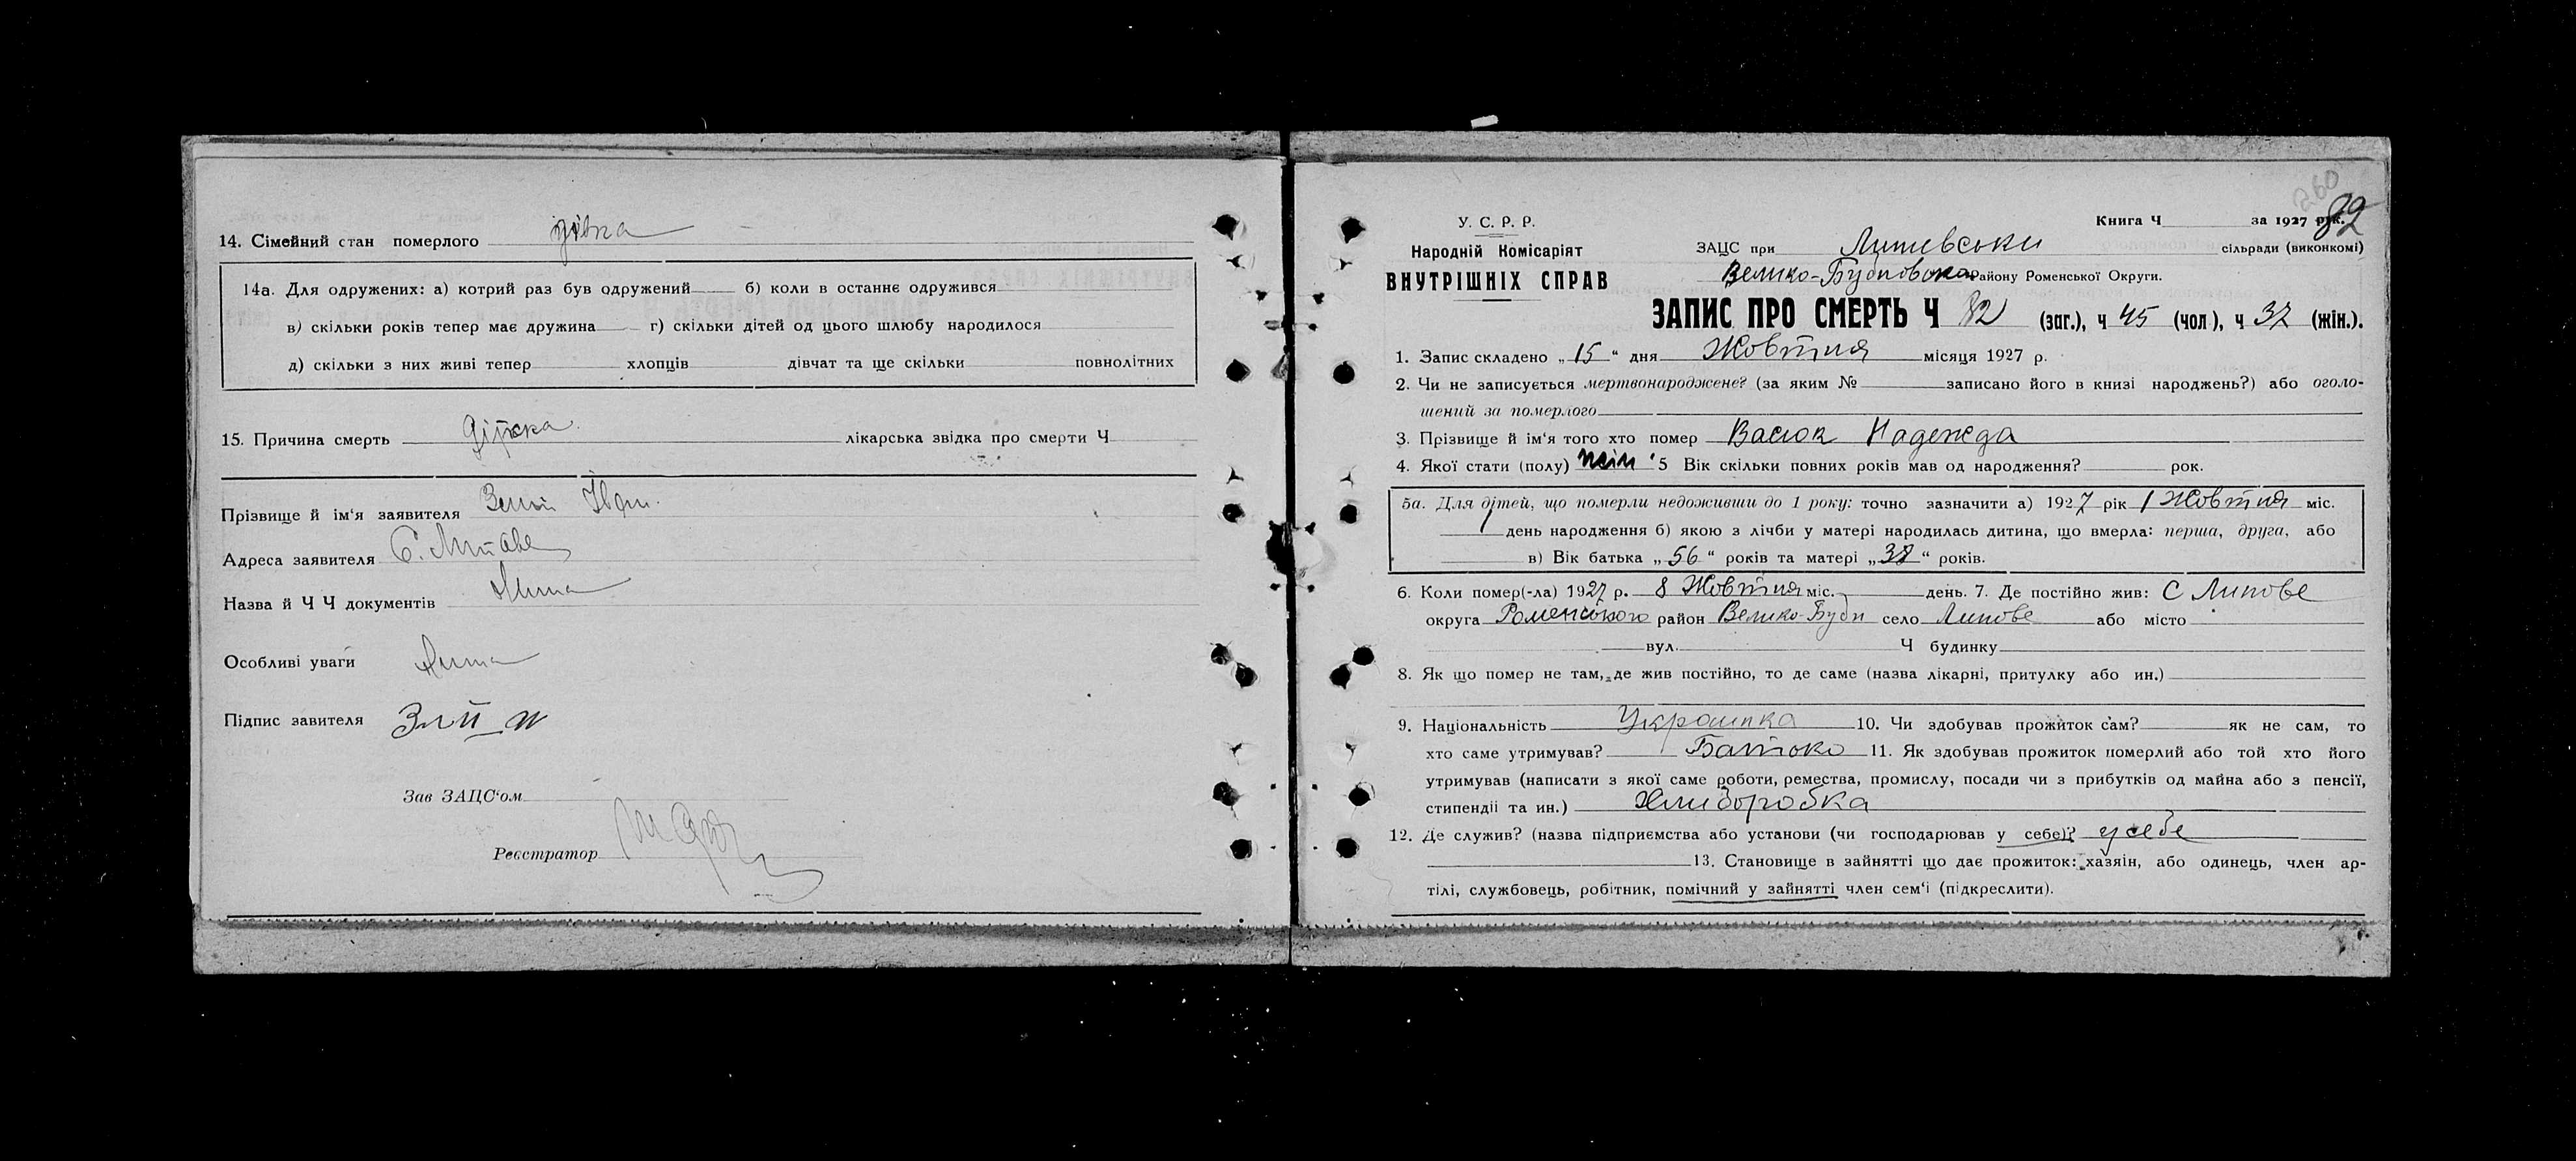 14. Сімейний стан померлого дівка
14а. Для одружених: а) котрий раз був одружений б) коли в останнє одружився
в) скільки років тепер має дружина г) скільки дітей од цього шлюбу народилося
д) скільки з них живі тепер хлопців дівчат та ще скільки повнолітних
15. Причина смерть лікарська звідка про смерти Ч
Прізвище й ім'я заявителя Іван
Адреса заявителя С. Липове
Назва й Ч Ч документів Нима
Особливі уваги Нима
Підпис завителя
Зав ЗАЦС'ом
Реєстратор
260
82
У. С. Р. Р.
Книга Ч за 1927 рік.
Народній Комісаріят
ВНУТРІШНІХ СПРАВ
ЗАЦС при Липивськи сільради (виконкомі)
Велико-Бубновском Району Роменської Округи.
ЗАПИС ПРО СМЕРТЬ Ч 82 (заг.), ч 45 (чол), ч 37 (жін.).
1. Запис складено „ 15 “ дня Жовтня місяця 1927 р.
2. Чи не записується мертвонароджене? (за яким № записано його в книзі народжень?) або оголо-
шений за померлого
3. Прізвище й ім'я того хто помер Васюк Надежда
4. Якої стати (полу) жін 5 Вік скільки повних років мав од народження? рок.
5а. Для дітей, що померли недоживши до 1 року: точно зазначити а) 1927 рік 1 Жовтня міс.
день народження б) якою з лічби у матері народилась дитина, що вмерла: перша, друга, або
в) Вік батька „ 56 “ років та матері „ 38 “ років.
6. Коли помер(-ла) 1927 р. 8 Жовтня міс. день. 7. Де постійно жив: С Липове
округа Роменського район Велико-Бубн село Липове або місто
вул. Ч будинку
8. Як що помер не там, де жив постійно, то де саме (назва лікарні, притулку або ин.)
9. Національність Украинка 10. Чи здобував прожиток сам? як не сам, то
хто саме утримував? Батько 11. Як здобував прожиток померлий або той хто його
утримував (написати з якої саме роботи, ремества, промислу, посади чи з прибутків од майна або з пенсії,
стипендії та ин.) Хлиборобка
12. Де служив? (назва підприємства або установи (чи господарював у себе)? у себе
13. Становище в зайнятті що дає прожиток: хазяін, або одинець, член ар-
тілі, службовець, робітник, помічний у зайнятті член сем'ї (підкреслити).